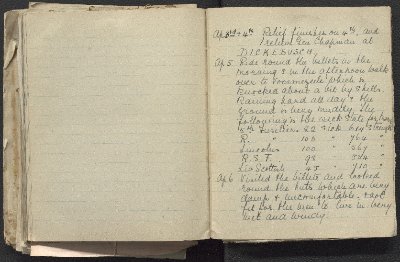 Relief finishes on 4th, and
I relieve Gen Chapman at
DICKEBUSCH.
Ap 5 Ride round the billets in the
morning & in the afternoon walk
over to Voormezeele which is
knocked about a bit by shells.
Raining hard all day & the
ground is very muddy. The
following is the sick state for
5th Fusiliers 82 sick
R. 106 " 764 "
Lincolns 100 " 567 "
R.S.F. 98 "
Liv Scottish 45 "
Ap 6 Visited the billets and looked
round the huts which are very
damp & uncomfortable. & not
fit for the men to live in. Very
wet and windy.